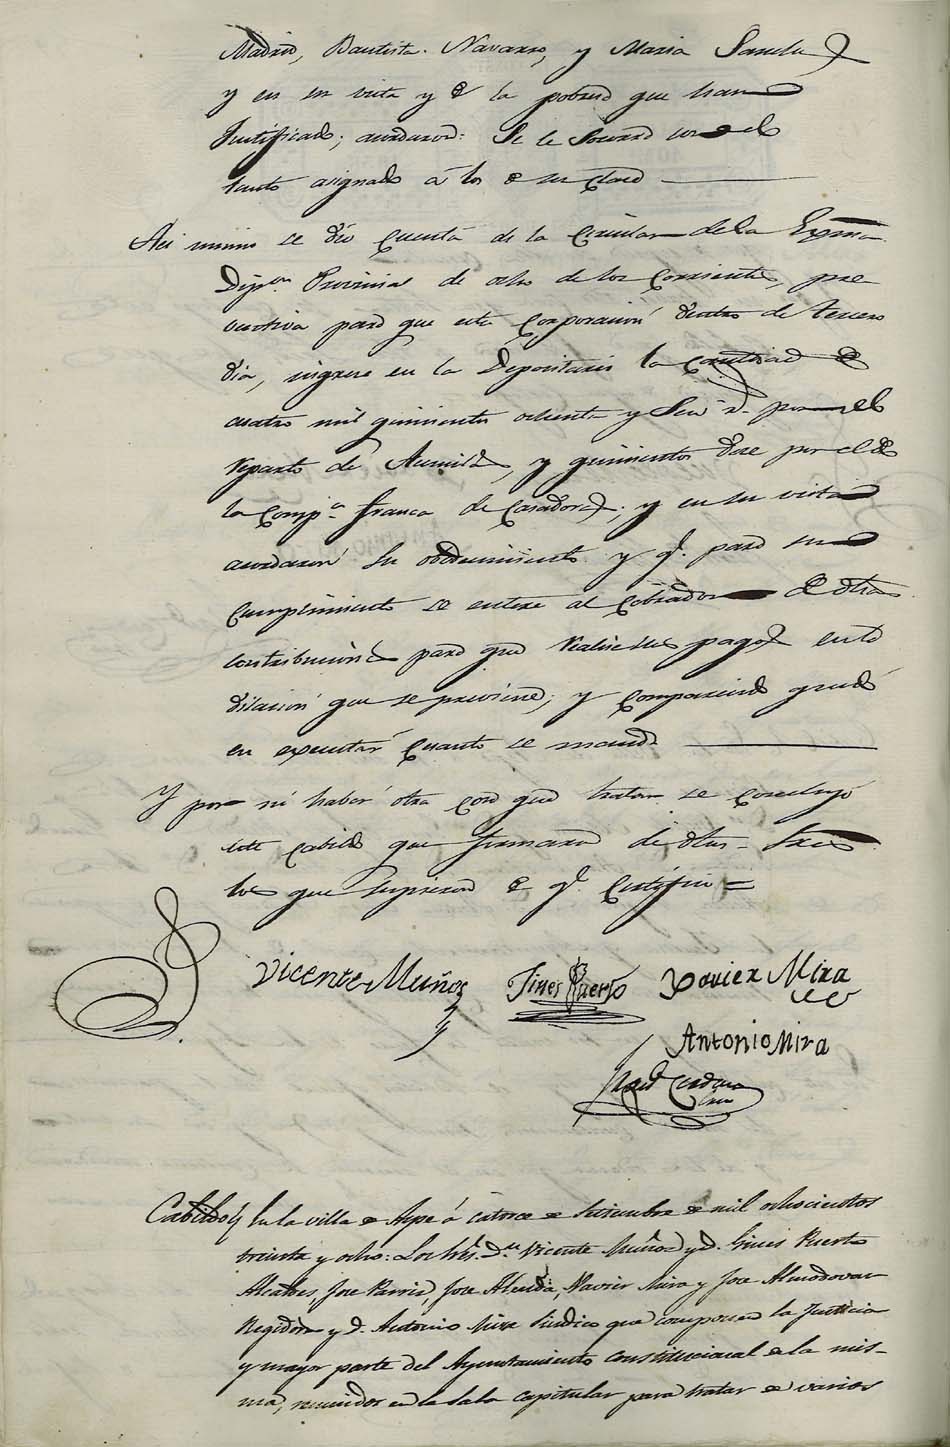 Madrid, Bautista Navarro, y Maria Sanchz
y en su vista y de la pobreza que han
Justificado; acordaron: Se le Socorra con el
tanto asignado á los de su clase
Asi mismo se dio cuenta de la Circular de la Exma.
Dipon. Provincial de ocho de los Corrientes, pre
ventiva para que esta Corporacion dentro de tercero
dia, ingrese en la Depositaria la Cantidad de
cuatro mil quinientos ochenta y Seis rs. por el
reparto de , y quinientos doze por el de
la Compa. franca de Cazadores; y en su vista
acordaron su obedecimiento y q. para su
cumplimiento se entere al Cobrador de dha
contribucion para que realice sus pagos en la
dilacion que se previene; y
en executar cuanto se manda
Y por no haber otra cosa que tratar se concluyó
este cabildo que firmaron de dhos. Sres
los que supieron de q. Certifico =
Vicente Muñoz Jines Puerto Xavier Mira
Antonio Mira
Cabildo En la villa de Aspe á catorce de Setiembre de mil ochocientos
treinta y ocho: Los Sres. Dn. Vicente Muñoz y D. Gines Puerto
Alcaldes, Jose Parris, Jose Alcaldá, Navier Mira y Jose Almodovar
Regidores y D. Antonio Mira Sindico que componen la Justicia
y mayor parte del Ayuntamiento constitucional de la mis-
ma, reunidos en la Sala capitular para tratar de varios